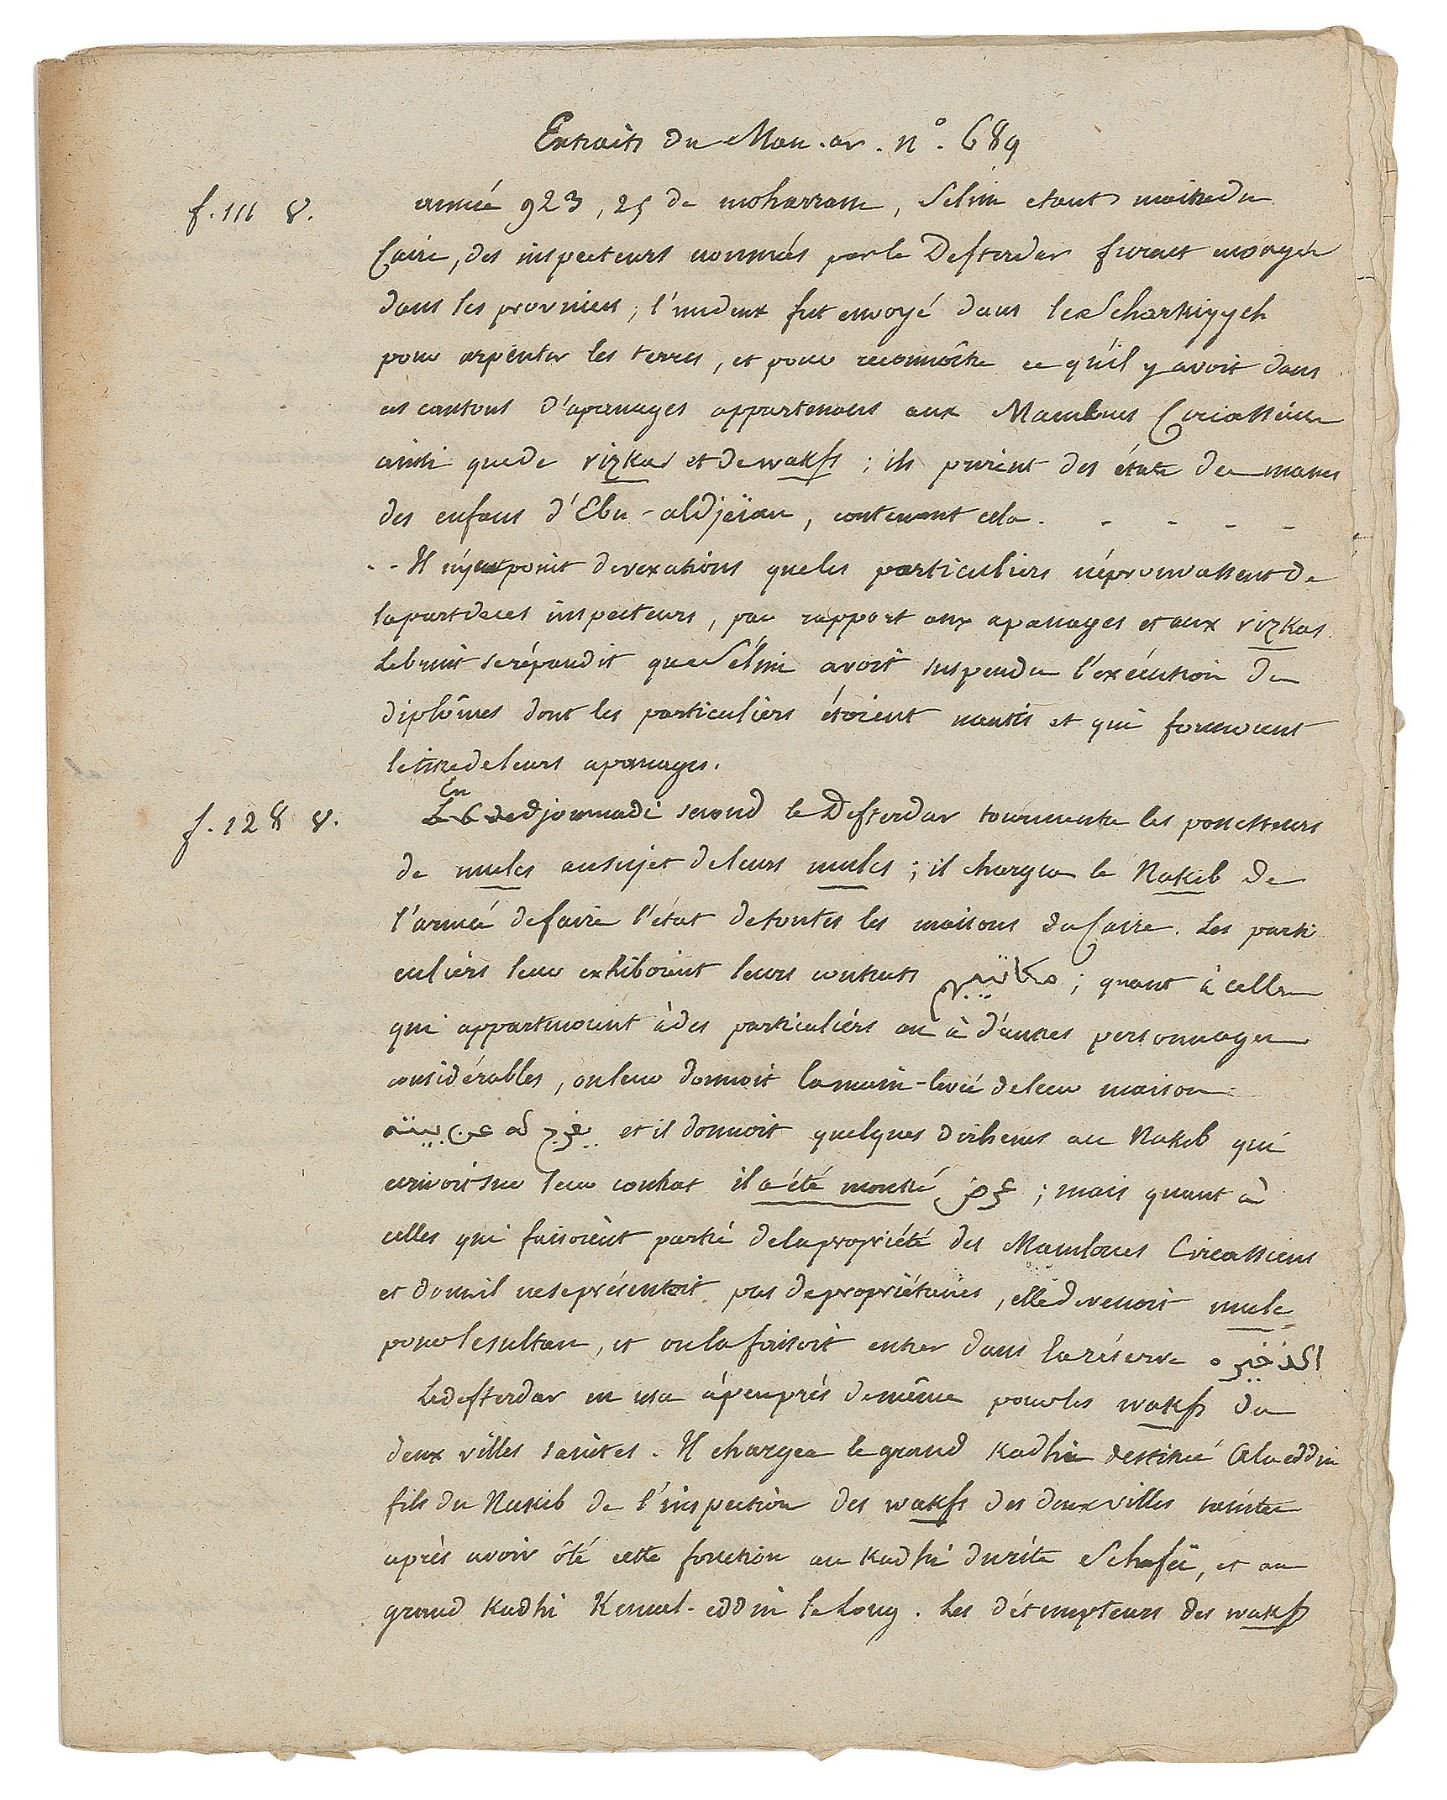 Extraits du Man. ar. n°. 689
f. 111 v.
année 923, 25 de moharram, Sélim etant maitre du
Caire, des inspecteurs nommés par le Defterdar furent envoyés
dans les provinces; l'un d'eux fut envoyé dans le Scharkiyyeh
pour arpenter les terres, et pour reconnoître ce qu'il y avoit dans
ces cantons d'apanages appartenans aux Mamlues Circassiens
ainsi que de rizkas et de wakfs; ils prirent des états des mains
des enfans d'Ebn-aldjeïan, contenant cela. - - - -
- - Il n'y eut point de vexations que les particuliers n'éprouvassent de
la part de ces inspecteurs, par rapport aux apanages et aux rizkas.
Le bruit se répandit que Sélim avoit suspendu l'exécution des
diplômes dont les particuliers étoient nantis et qui formoient
le titre de leurs apanages.
f. 128 v.
En
djoumadi second le Defterdar tourmenta les possesseurs
de mulcs au sujet de leurs mulcs; il chargea le Nakib de
l'armée de faire l'état de toutes les maisons du Caire. Les parti
culiers leur exhiboient leurs contrats مكاتيبهم; quant à celles
qui appartenoient à des particuliers ou à d'autres personnages
considérables, on leur donnoit la main-levée de leur maison
يفرج له عن بيته et il donnoit quelques dirhems au Nakib qui
ecrivoit sur leur contrat il a été montré عرض; mais quant à
celles qui faisoient partie de la propriété des Mamloucs Circassiens
et dont il ne se présentoit pas de propriétaires, elle devenoit mulc
pour le sultan, et on la faisoit entrer dans la réserve الذخيره
Le defterdar en usa à peu près de même pour les wakfs des
deux villes saintes. Il chargea le grand Kadhi destitué Ala eddin
fils du Nakib de l'inspection des wakfs des deux villes saintes
après avoir ôté cette fonction au Kadhi du rite Schafëi, et au
grand Kadhi Kemal-eddin le Long. Les détempteurs des wakfs